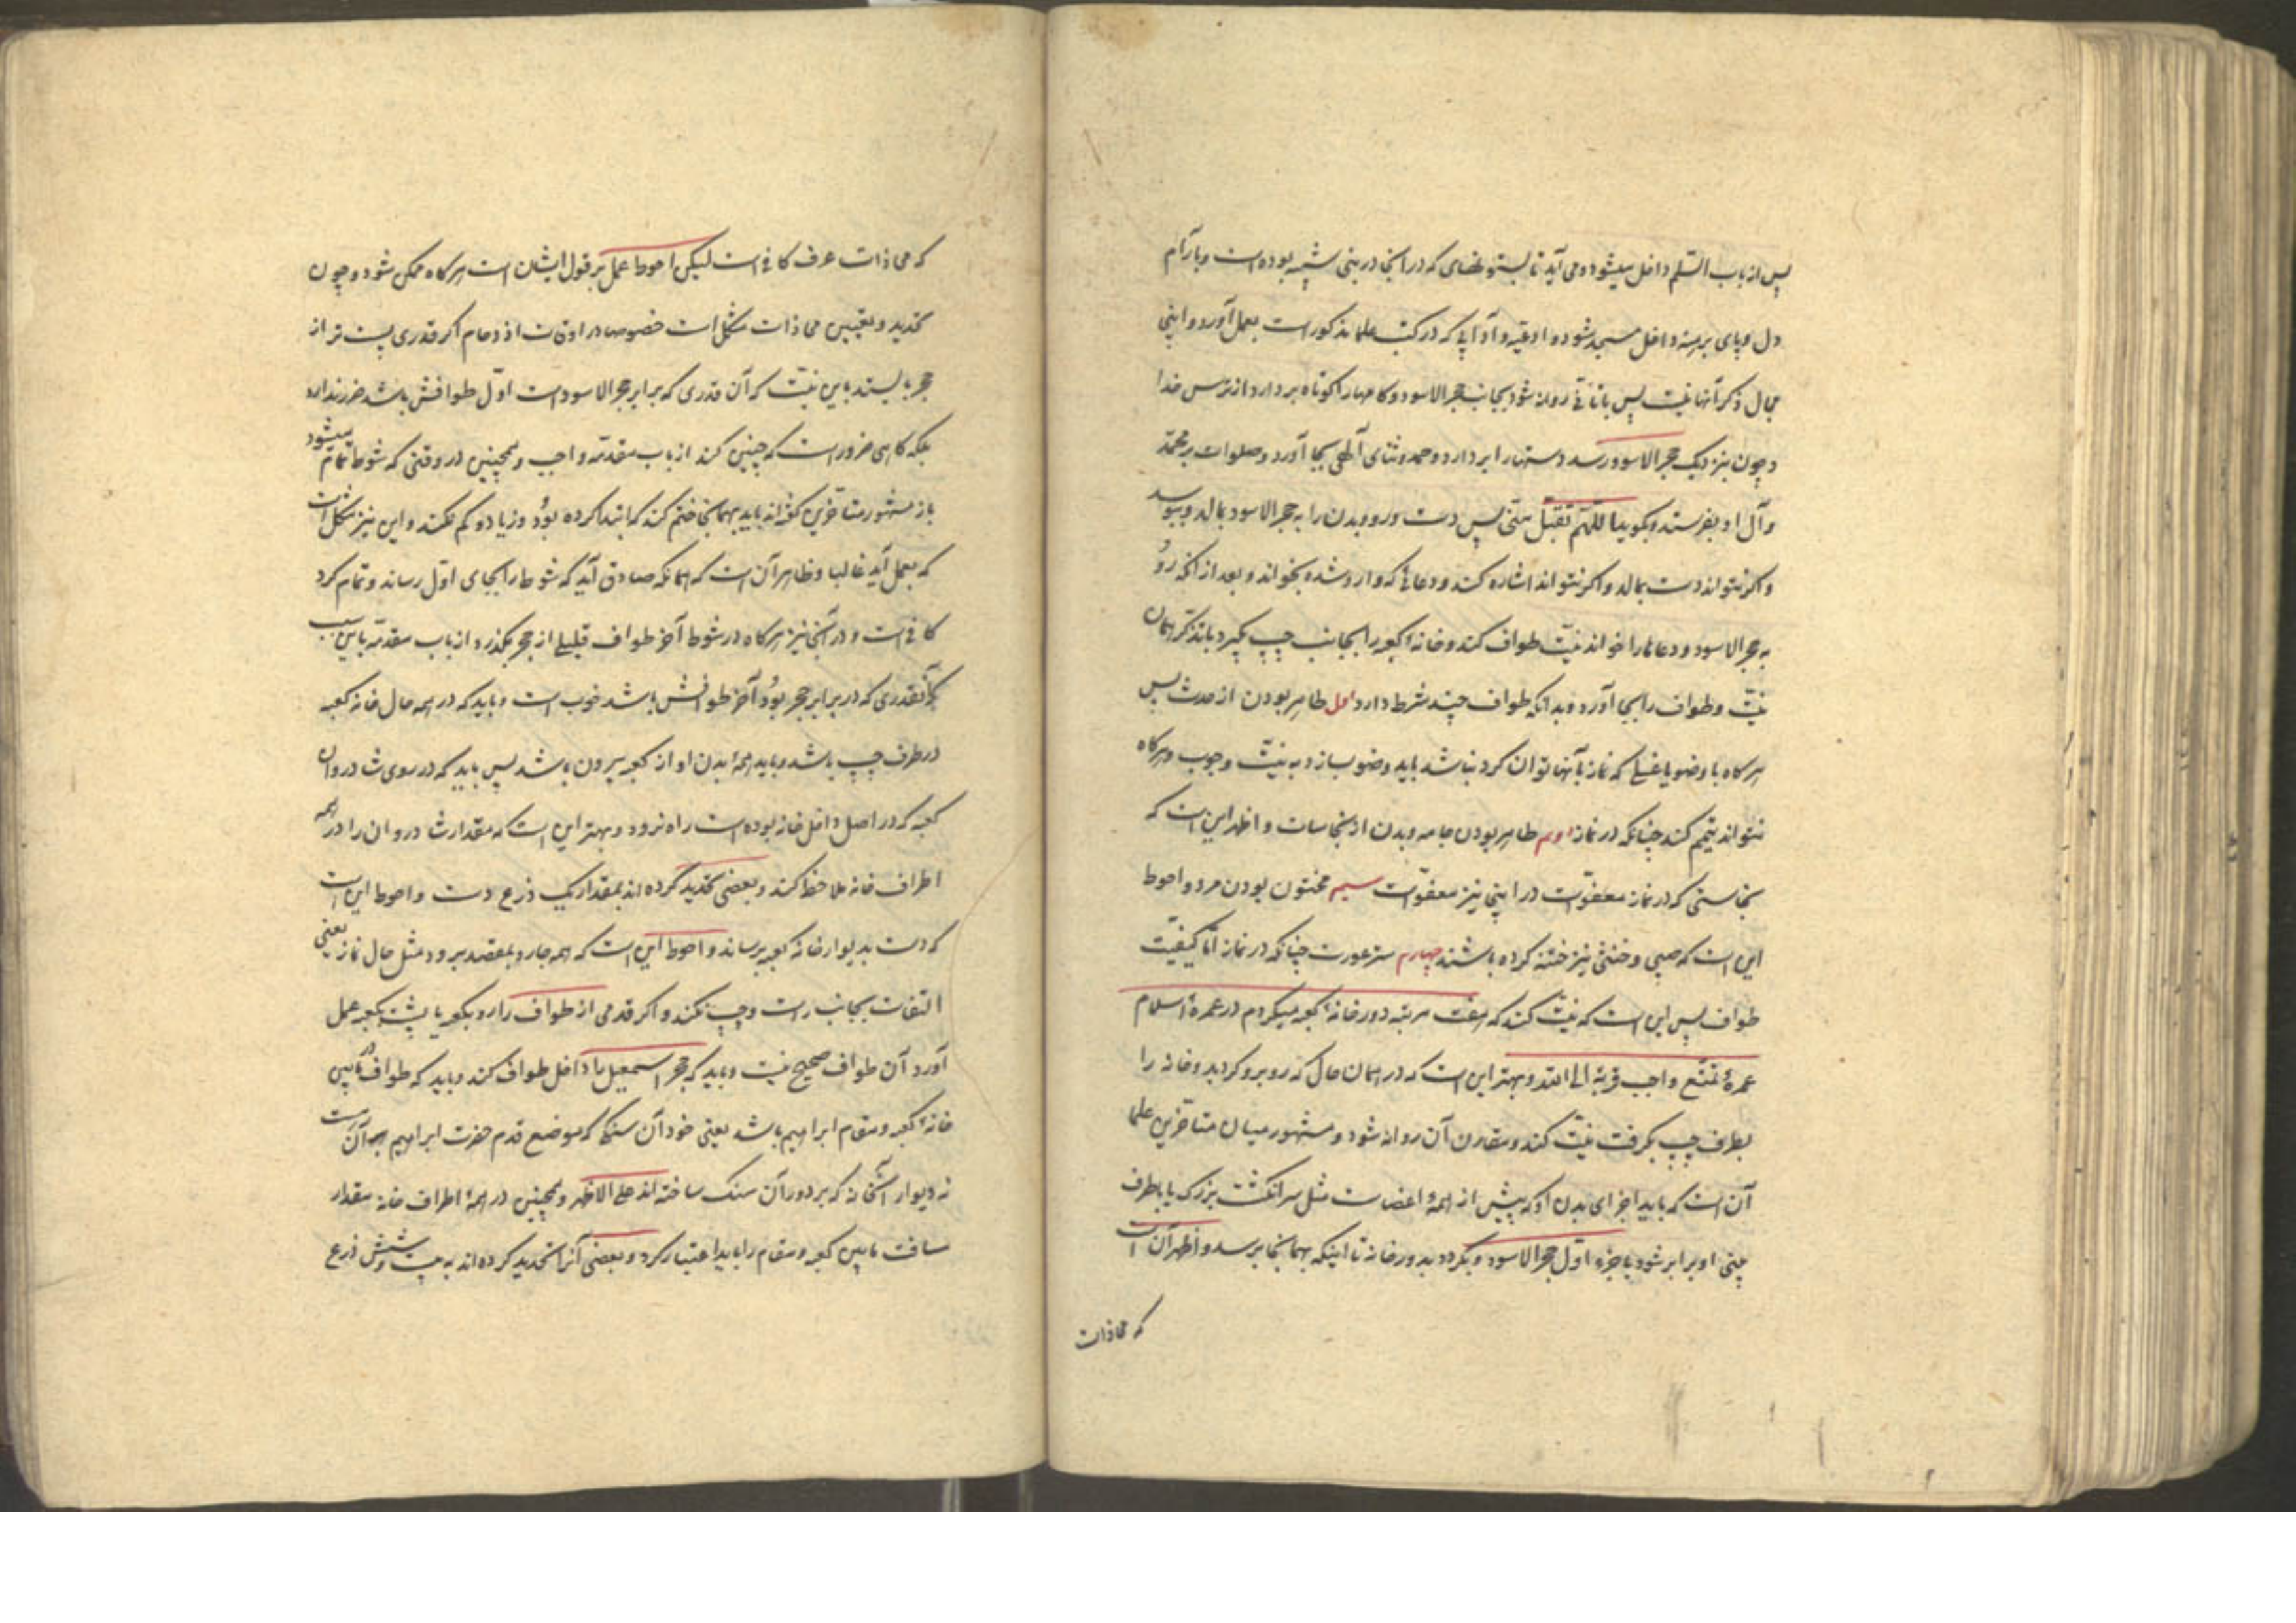 پس از باب السّلم داخل میشود و می آید تا بستونهای که در انجا در بنی شیبه بوده است و بآرام
دل و پای برهنه داخل مسجد شود و ادعیه و آدابی که در کتب علما مذکور است بعمل آورد و اینجا
مجال ذکر آنها نیست پس بتأنّی روانه شود بجانب حجر الاسود و کامها را کوتاه بردارد از ترس خدا
و چون بنزدیک حجر الاسود رسد دستها را بردارد و حمد و ثنای آلهی بجا آورد و صلوات بر محمّد
و آل او بفرستد و بگوید اللهمّ تقبّل منّی پس دست و رو و بدن را به حجر الاسود بمالد و ببوسد
و اکر نتواند دست بمالد و اکر نتواند اشاره کند و دعائی که وارد شده بخواند و بعد از انکه رو
به حجر الاسود و دعاها را خواند نیّت طواف کند و خانهٔ کعبه را بجانب چپ بگیرد با تذکر همان
نیّت و طواف را بجا آورد و بدانکه طواف چند شرط دارد اول طاهر بودن از حدث پس
هرگاه با وضو یا غسلی که نماز بآنها توان کرد نباشد باید وضو بسازد به نیّت وجوب و هرگاه
نتواند تیمّم کند چنانکه در نماز دوم طاهر بودن جامه و بدن از نجاسات و اظهر این است که
نجاستی که در نماز معفوّ است در اینجا نیز معفوّ است سیم مختون بودن مرد و احوط
این است که صبی و خنثی نیز ختنه کرده باشند چهارم ستر عورت چنانکه در نماز امّا کیفیّت
طواف پس این است که نیّت کند که هفت مرتبه دور خانهٔ کعبه میکردم در عمرهٔ اسلام
عمرهٔ تمتّع واجب قربة الی الله و بهتر این است که در همان حال که روبرو کردید و خانه را
بطرف چپ بگرفت نیّت کند و مقارن آن روانه شود و مشهور میان متأخرین علما
آن است که باید اجزای بدن او که پیش از همهٔ اعضاست مثل سر انگشت بزرک پا یا طرف
بینی او برابر شود با جزء اوّل حجر الاسود و بگردد بدور خانه تا اینکه بهمانجا برسد و اظهر آن است
که محاذات
که محاذات عرف کافی است لیکن احوط عمل بر قول ایشان است هرگاه ممکن شود و چون
تحدید و تعیین محاذات مشکل است خصوصا در اوقات ازدحام اکر قدری پست تر از
حجر بایستد باین نیّت که آن قدری که برابر حجر الاسود است اوّل طوافش باشد ضرر ندارد
بلکه کاهی ضرور است که چنین کند از باب مقدّمه واجب و همچنین در وقتی که شوط تمام میشود
باز مشهور متأخرین گفته اند باید بهمانجا ختم کند که ابتدا کرده بود و زیاد و کم نکند و این نیز مشکل است
که بعمل آید غالبا و ظاهر آن است که همانکه صادق آید که شوط را بجای اوّل رساند و تمام کرد
کافی است و در آنجا نیز هرگاه در شوط آخر طواف قلیلی از حجر بگذرد از باب مقدّمه باین سبب
که آنقدری که در برابر حجر بود آخر طوافش باشد خوب است و باید که در همه حال خانه کعبه
در طرف چپ باشد و باید همهٔ بدن او از کعبه بیرون باشد پس باید که در روی شادروان
کعبه که در اصل داخل خانه بوده است راه نرود و بهتر این است که مقدار شادروان را در همه
اطراف خانه ملاحظه کند و بعضی تحدید کرده اند بمقدار یک ذرع دست و احوط این است
که دست بدیوار خانه کعبه نرساند و احوط این است که همه جا رو بمقصد برود مثل حال نماز یعنی
التفات بجانب راست و چپ نکند و اکر قدمی از طواف را رو بکعبه یا پشت بکعبه عمل
آورد آن طواف صحیح نیست و باید که حجر اسمعیل را داخل طواف کند و باید که طواف در مابین
خانهٔ کعبه و مقام ابراهیم باشد یعنی خود آن سنگی که موضع قدم حضرت ابراهیم بر آن است
نه دیوار آنخانه که بر دور آن سنک ساخته اند علی الاظهر و همچنین در همهٔ اطراف خانه مقدار
مسافت مابین کعبه و مقام را باید اعتبار کرد و بعضی آنرا تحدید کرده اند به بیست و شش ذرع